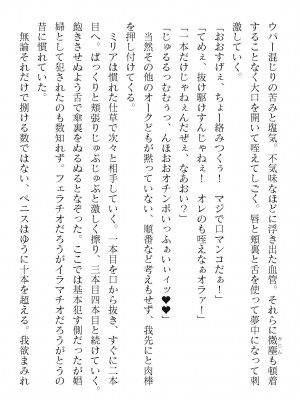 ウパー混じりの苦みと塩気。不気味なほどに浮き出た血管。それらに微塵も頓着
することなく大口を開いて咥えてしごく。唇と頬裏と舌を使って夢中になって刺
激していく。
「おおすげぇ、ちょー絡みつくぅ！　マジで口マンコだぁー！」
「てめぇ、抜け駆けすんじゃねぇ！　オレのも咥えなぁオラァ！」
「一本だけじゃねぇんだぜぇ、なあおい？」
「じゅるるっむむぅっ、んほおおオチンポいっふぁいぃイッ♥♥」
当然その他のオークどもが黙っていない、順番など考えもせず、我先にと肉棒
を押し付けてくる。
ミリアは慣れた仕草で次々と相手していく。一本目を口から抜き、すぐに二本
目へ。ぱっくりと頬張りじゅぷじゅぷと激しく擦り、三本目四本目と続けていく。
飽きさせぬよう舌で傘裏をぬるぬるとなぞった。ここでは基本犯す側だったが娼
婦として犯されたのも数知れず。フェラチオだろうがイラマチオだろうがとうの
昔に慣れていた。
無論それだけで捌ける数ではない。ペニスはゆうに十本を超える。我欲まみれ